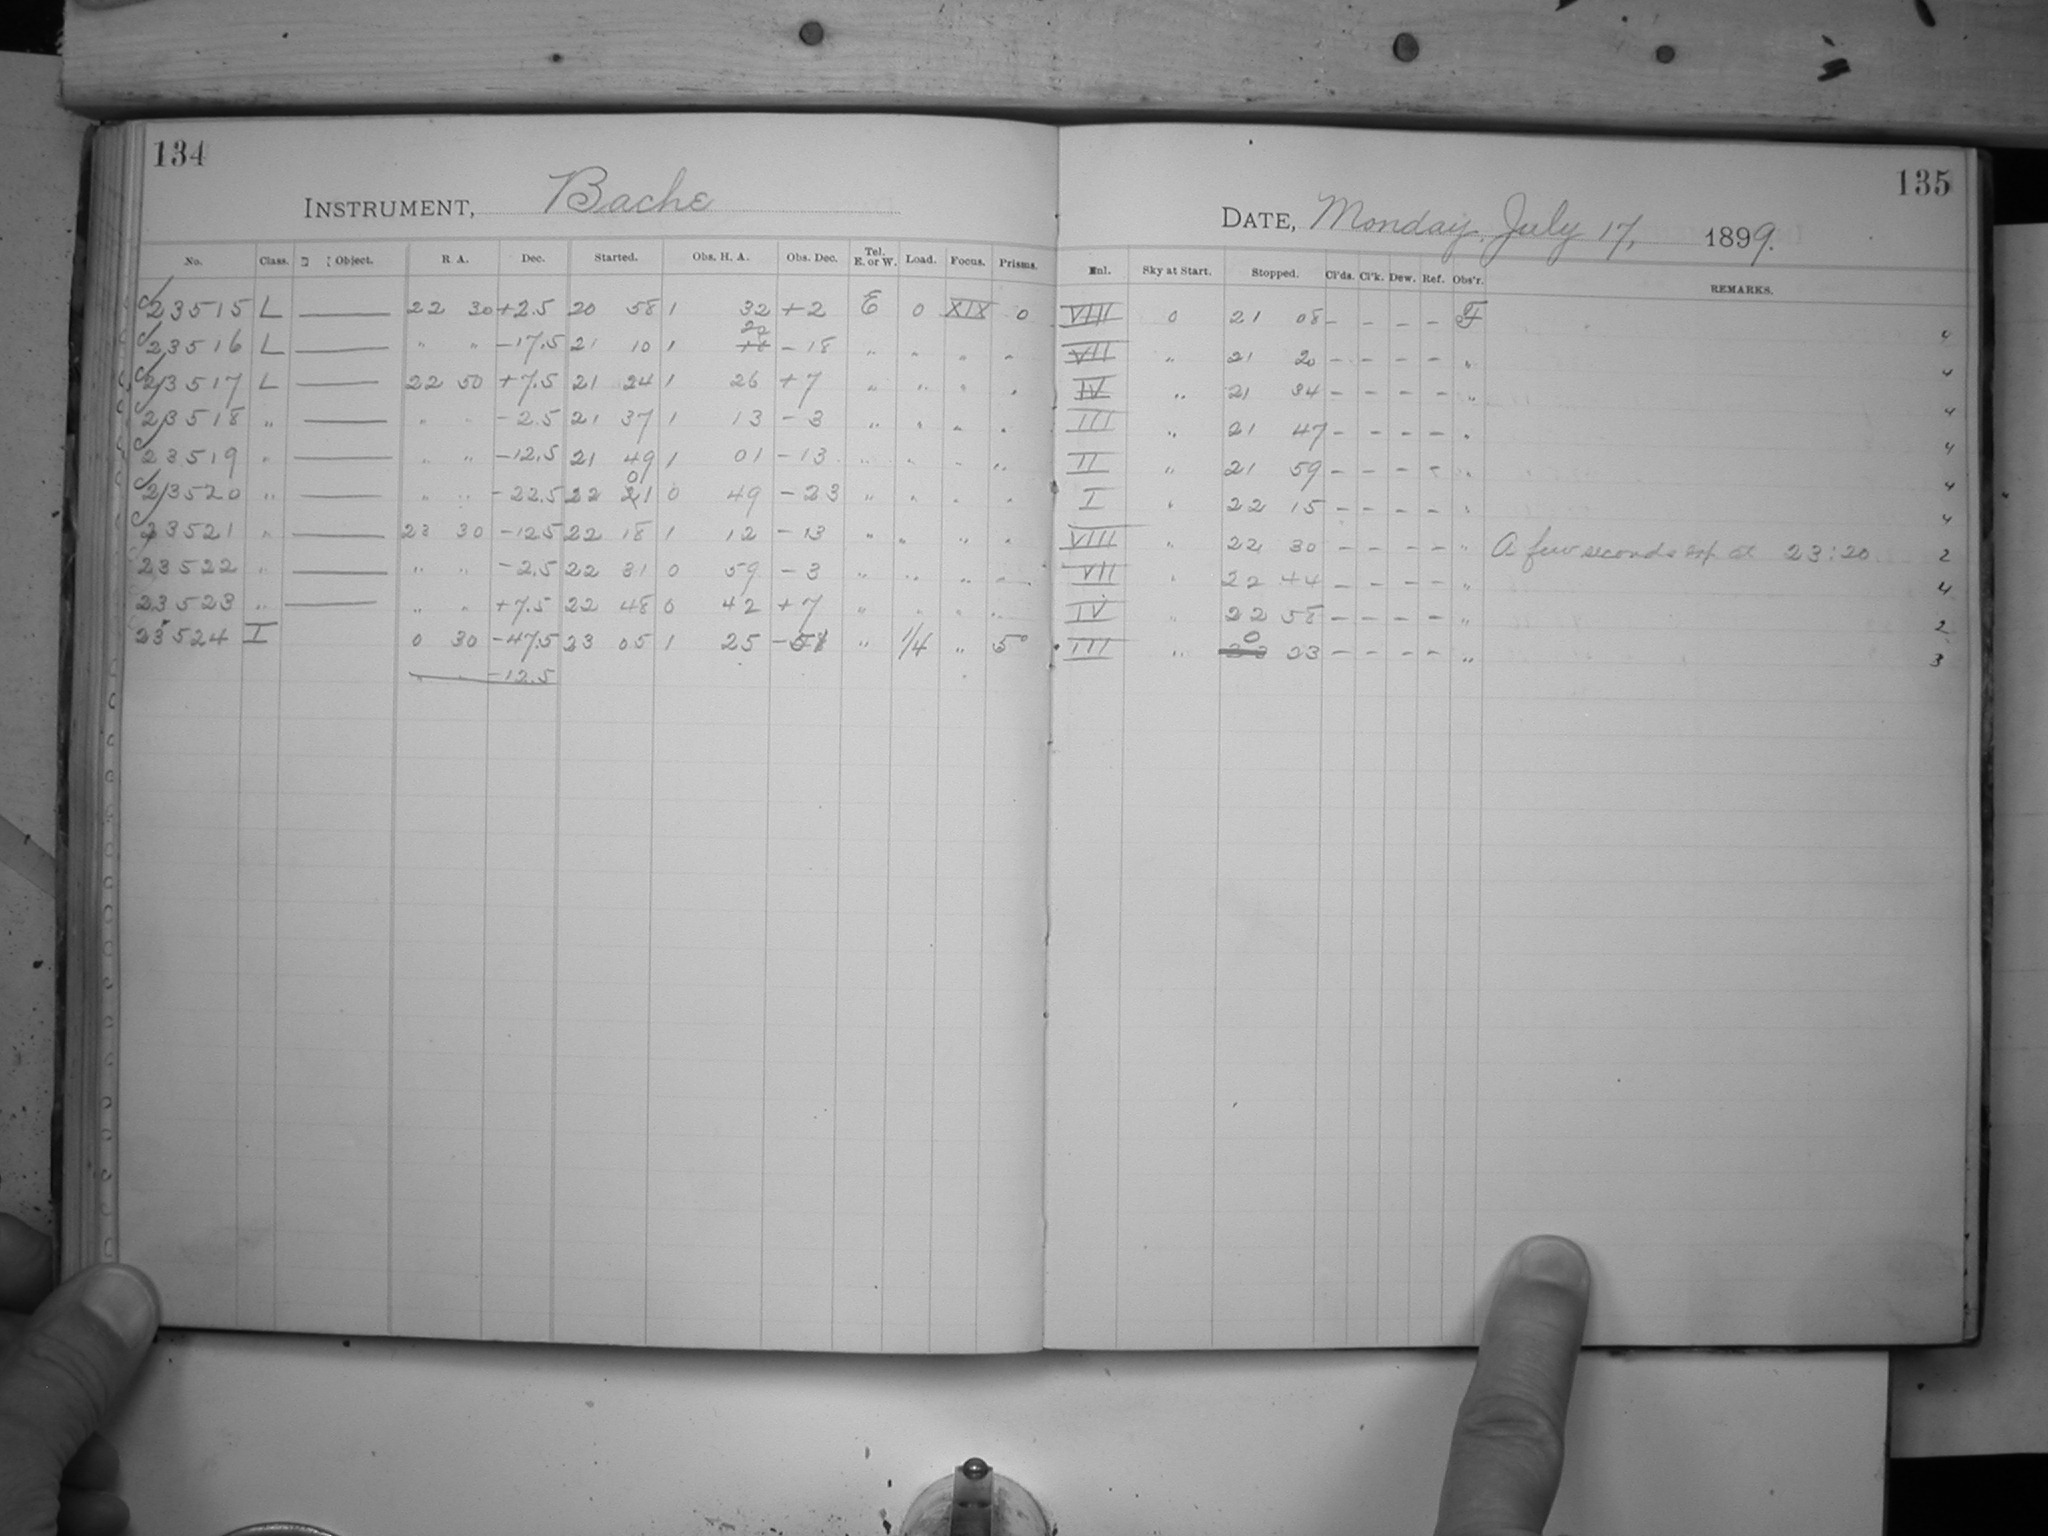 134
INSTRUMENT, Bache
No. Class. Object. R A. Dec. Started. Obs. H. A. Obs. Dec. Tel. E. or W. Load. Focus. Prisms.
23515 L —— 22 30 +2.5 20 58 1 32 +2 E 0 XIX 0
23516 L —— " " -17.5 21 10 1 22 18 -18 " " " "
23517 L —— 22 50 +7.5 21 24 1 26 +7 " " " "
23518 " —— " " -2.5 21 37 1 13 -3 " " " "
23519 " —— " " -12.5 21 49 1 01 -13 " " " "
23520 " —— " " -22.5 22 01 21 0 49 -23 " " " "
23521 " —— 23 30 -12.5 22 18 1 12 -13 " " " "
23522 " —— " " -2.5 22 31 0 59 -3 " " " "
23523 " —— " " +7.5 22 48 0 42 +7 " " " "
23524 I 0 30 -47.5 23 05 1 25 " 1/4 " 5°
" " -12.5
135
DATE, Monday, July 17, 1899.
Enl. Sky at Start. Stopped. Cl'ds. Cl'k. Dew. Ref. Obs'r. REMARKS.
VIII 0 21 08 - - - - F 4
VII " 21 20 - - - - " 4
IV " 21 34 - - - - " 4
III " 21 47 - - - - " 4
II " 21 59 - - - - " 4
I " 22 15 - - - - " 4
VIII " 22 30 - - - - " A few seconds exp. at 23:20 2
VII " 22 44 - - - - " 4
IV " 22 58 - - - - " 2
III " 0 23 - - - - " 3